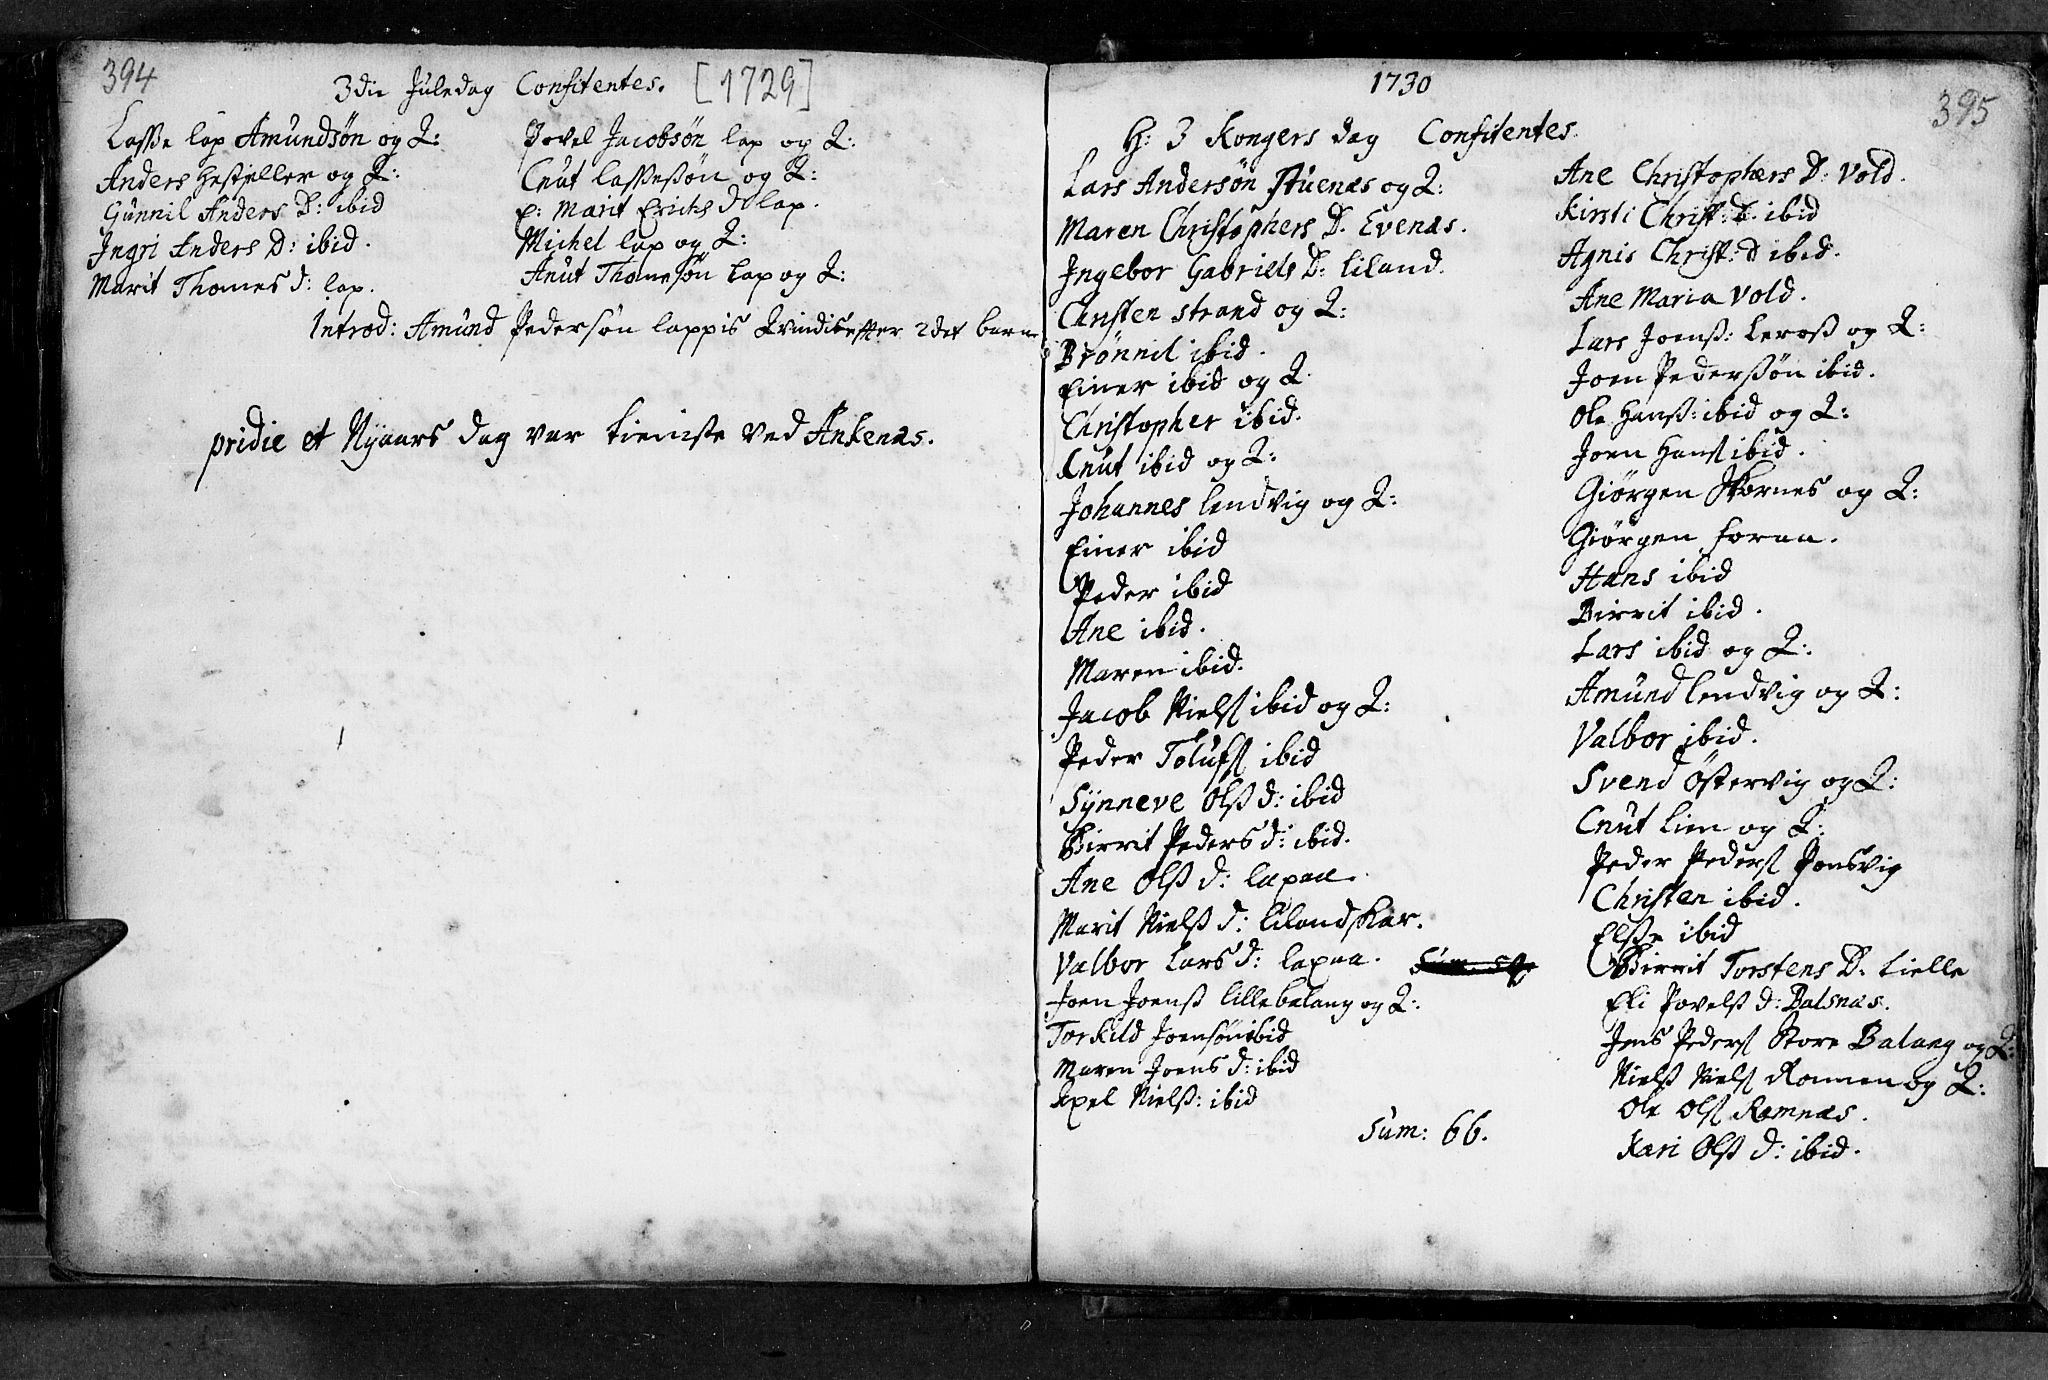 394
3die Juledag Confitentes. [1729]
Lasse lap Amundsøn og Q:
Anders Hestfeller og Q:
Gunnil Anders D: ibid
Ingri Anders D: ibid.
Marit Thomes d: lap.
Povel Jacobsøn lap og Q:
Cnut Lassesøn og Q:
E: Marit Erichs d lap.
Michel lap og Q:
Knut Thomesøn lap og Q:
Introd: Amund Pedersøn lappis Qvinde efter 2det barn
pridie et Nyaars dag var tieniste ved Ankenæs.
1730
395
H: 3 Kongers dag Confitentes.
Lars Andersøn Stuenæs og Q:
Maren Christophers D. Evenæs.
Ingebor Gabriels D: Liland.
Christen Strand og Q:
Brønnil ibid.
Einer ibid og Q.
Christopher ibid.
Cnut ibid og Q:
Johannes Lendvig og Q:
Einer ibid
Peder ibid
Ane ibid.
Maren ibid.
Jacob Niels ibid og Q:
Peder Tolufs ibid
Synneve Olß d: ibid
Birrit Peders d: ibid.
Ane Olß d: Lapaa.
Marit Nielß d: Lilandskar.
Valbor Lars d: Lapaa.
Joen Joenß Lillebalang og Q:
Torkild Joensøn ibid
Maren Joens d: ibid
Axel Nielß: ibid
Sum: 66.
Ane Christophers D: Vold.
Kirsti Christ: D. ibid
Agnis Christ: D ibid.
Ane Maria Vold.
Lars Joenß: Leroß og Q:
Joen Pederßøn ibid.
Ole Hanß: ibid og Q:
Joen Hans ibid.
Giørgen Skornes og Q:
Giørgen Foraa.
Hans ibid
Birrit ibid.
Lars ibid og Q:
Amund Lendvig og Q:
Valbor ibid.
Svend Østervig og Q:
Cnut Lien og Q:
Peder Peders Ponsvig
Christen ibid.
Elße ibid
Birrit Torstens D. Lielle
Eli Povelß d: Balsnæs.
Jens Peders Store Balang og Q:
Nielß Niels Ramen og Q:
Ole Ols Ramnæs.
Kari Olß d: ibid.